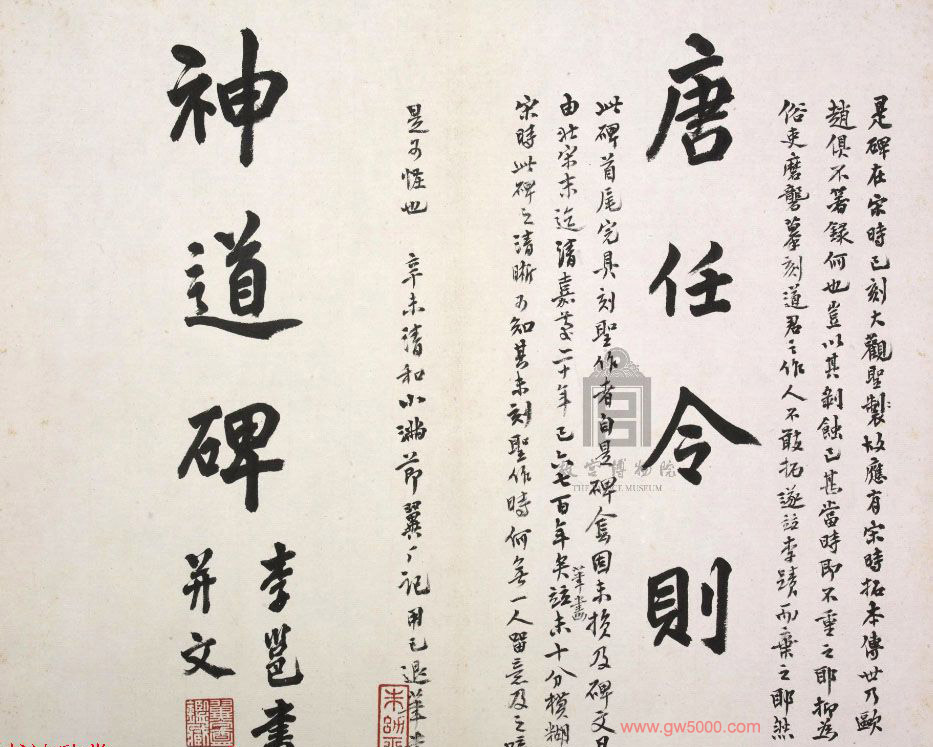 是碑在宋時已刻大觀聖製故應有宋時拓本傳世乃歐
趙俱不著錄何也豈以其剝蝕已甚當時即不重之耶抑為
俗吏磨礱摹刻道君之作人不敢拓遂並李蹟而棄之耶然
唐任令則
此碑首尾完具刻聖作者自是碑套因未損及碑文且
筆畫
由北宋末迄清嘉慶二十年已六七百年矣並未十分模糊
宋時此碑之清晰可知其未刻聖作時何無一人留意及之
是可怪也 辛未清和小滿節翼厂記用已退筆
神道碑
李邕書
并文
故宮博物院
THE PALACE MUSEUM
www.gw5000.com